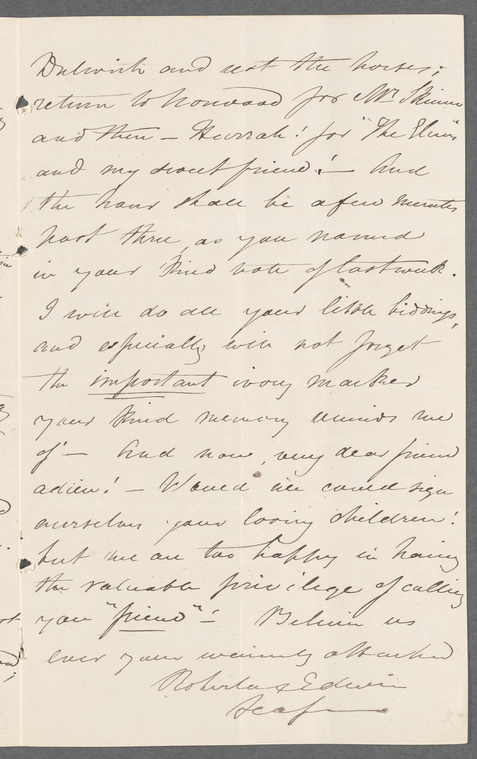 Dulwich and rest the horses;
return to Norwood for Mr. Skinner
and then – Hurrah! for "The Elms"
and my sweet friend! – And
the hour shall be a few minutes
past three, as you named
in your kind note of last week.
I will do all your little biddings,
and especially will not forget
the important ivory marked
your kind memory reminds me
of – And now, very dear friend
adieu! – Would we could sign
ourselves your loving children!
but we are too happy in having
the valuable privilege of calling
you "friend" – Believe us
ever your warmly attached
Roberta & Edwin